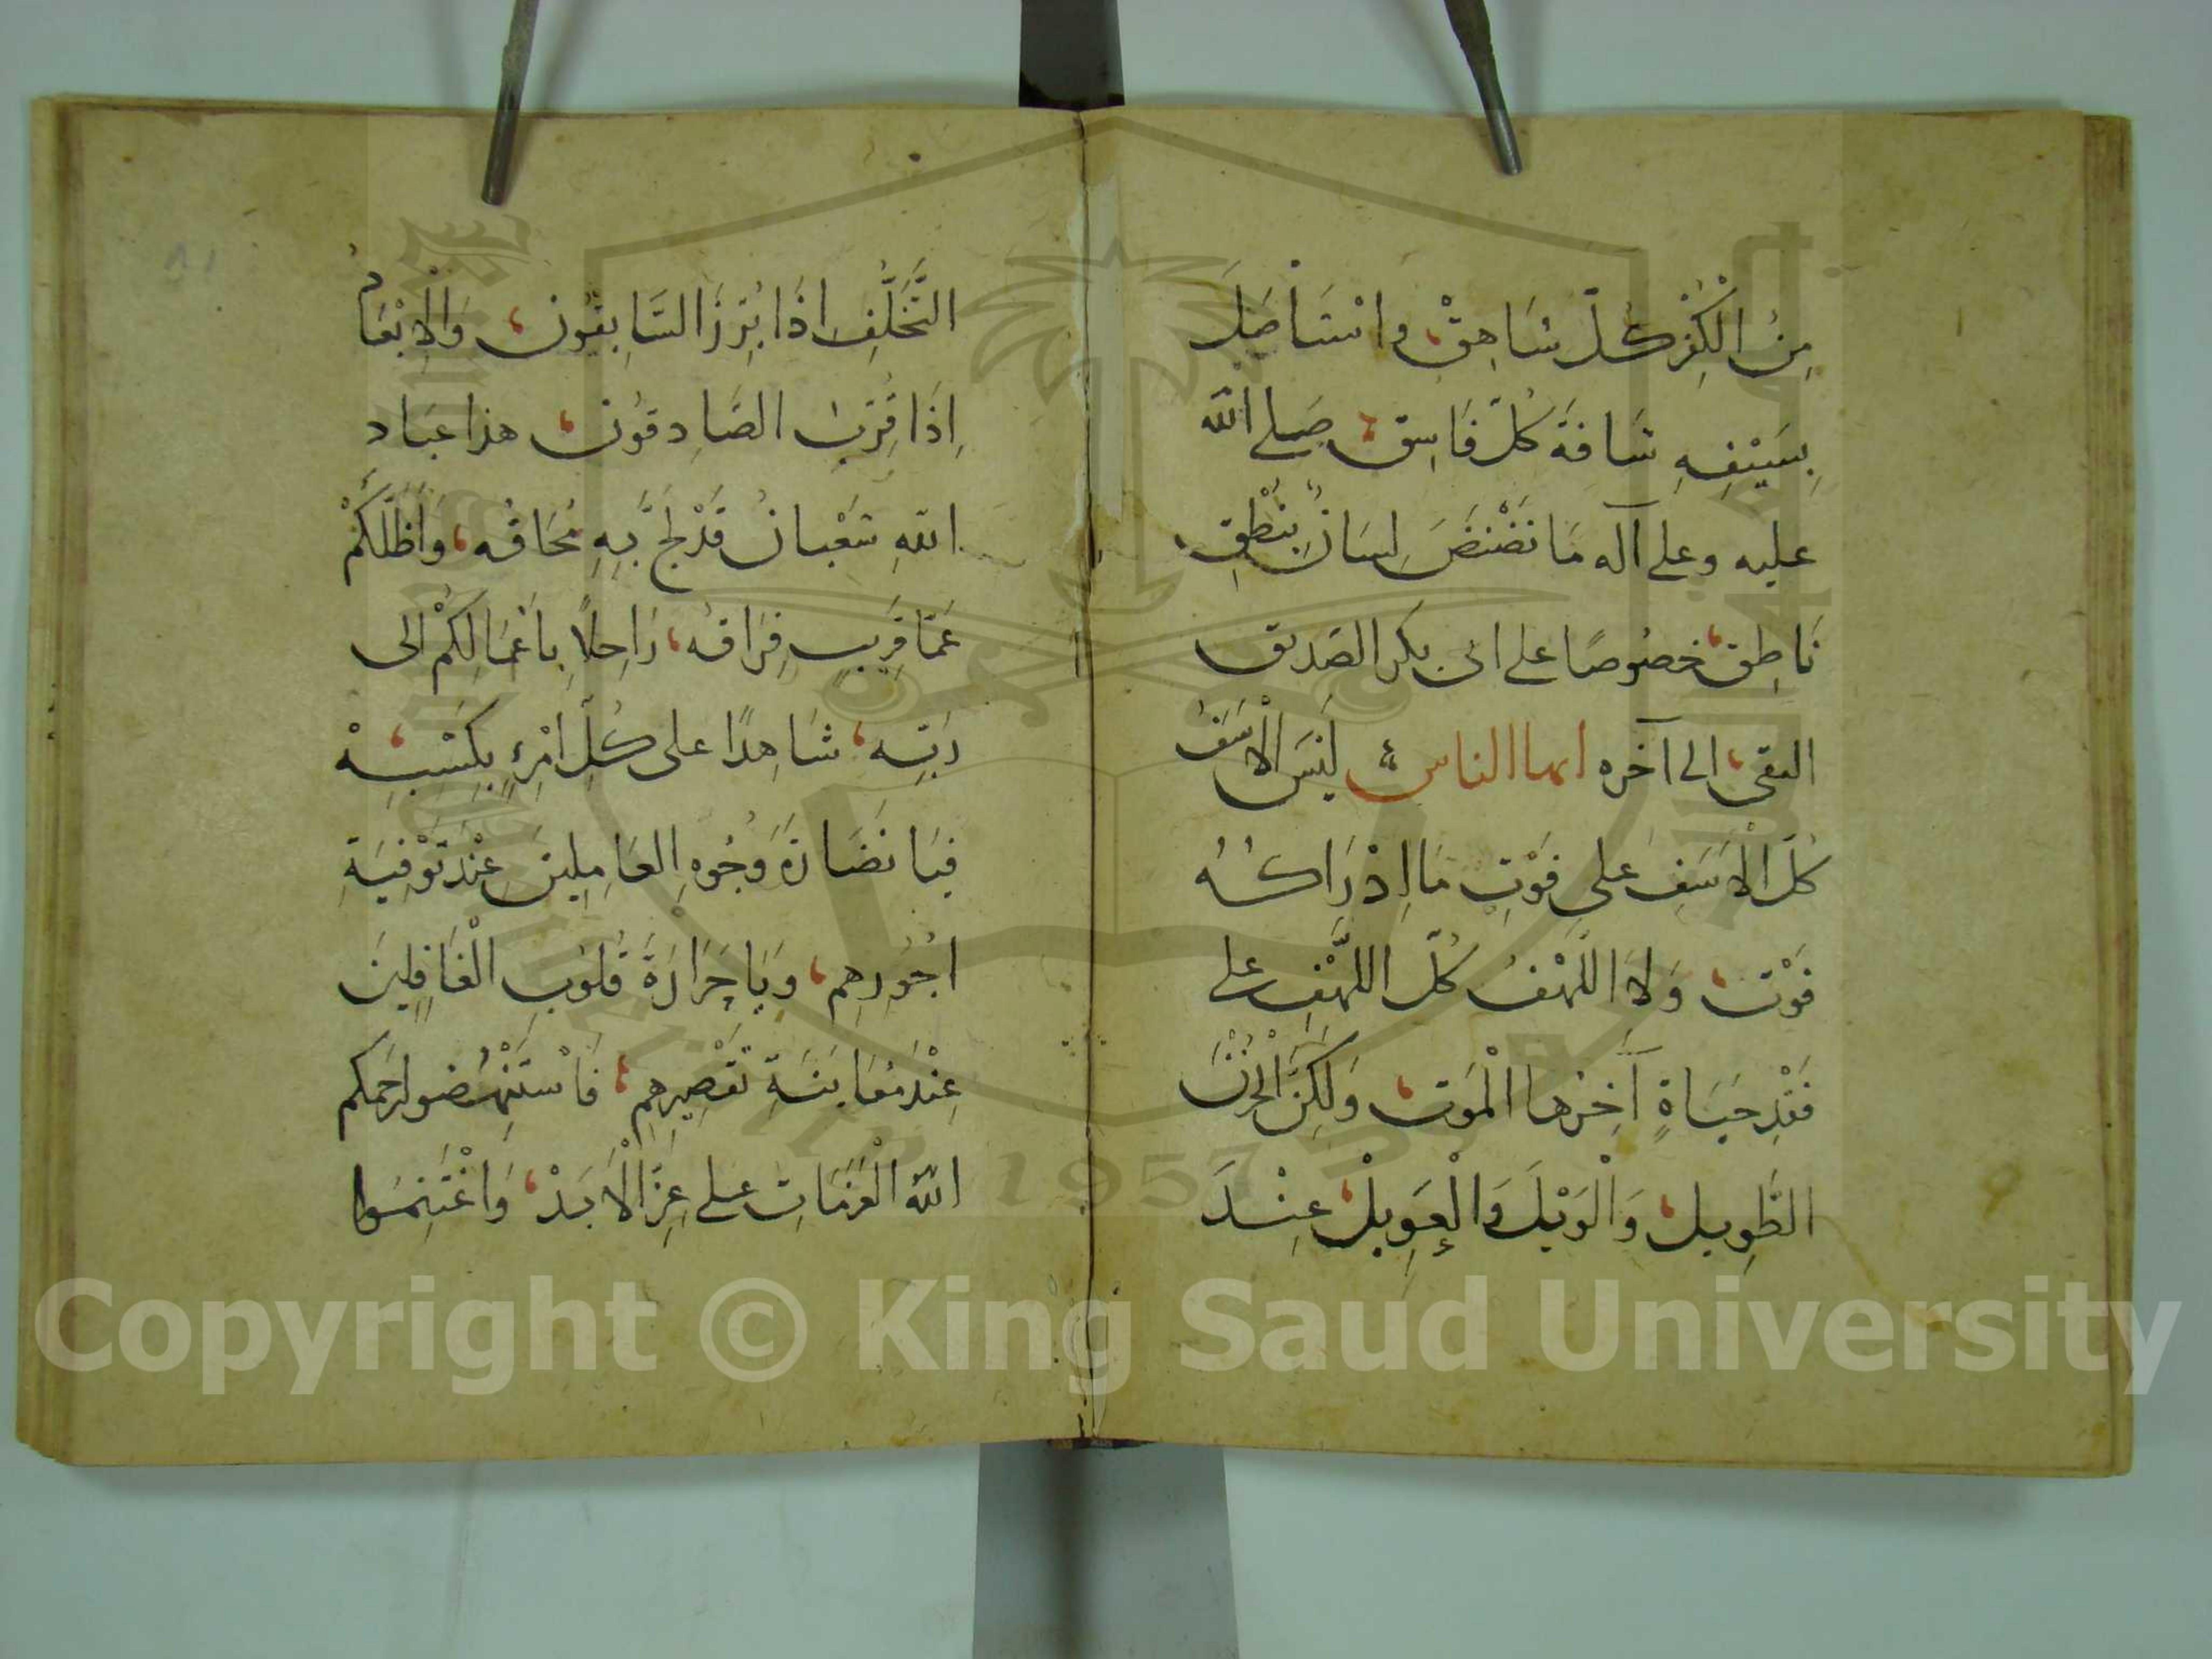 مِنَ الْكُفْرِ كُلَّ شَاهِقْ، وَاسْتَأْصَلَ
بِسَيْفِهِ شَافَةَ كُلِّ فَاسِقْ، صَلى الله
عليه وعلى آله مَا نَضْنَضَ لِسَانٌ بِنُطْقِ
نَاطِقْ، خصُوصًا على ابى بكر الصّديق
التقى، الى آخره ايها الناس، لَيْسَ الْأَسَفُ
كُلَّ الْأَسَفِ عَلى فَوْتِ مَا اِدْرَاكُهُ
فَوْت، وَلَا اللَّهْفُ كُلَّ اللَّهْفِ على
فَقْدِ حَيَاةٍ آخِرُهَا الْمَوت، وَلَكِنَّ الْحُزْنَ
الطَّوِيل، وَالْوَيْلَ وَالْعَوِيلْ، عِنْدَ
التَّخَلُّفِ اِذَا بُرِّزَ السَّابِقُون، وَالْاِنْعَامُ
اِذَا قُرِّبَ الصَّادِقُون، هذا عِبَاد
اللهِ شَعْبانُ قَدْ لَجَّ بِهِ مُحَاقُه، وَاَظَلَّكُمْ
عَمَّا قَرِيبٍ فِرَاقُه، رَاحِلاً بِاَعْمَالِكُمْ الى
رَبِّه، شَاهِدًا على كُلِّ امْرِءٍ بِكَسْبِهْ،
فَيَا نَضَارَةَ وُجُوهِ العَامِلِينَ عِنْدَ تَوْفِيَةِ
اُجُورِهِم، وَيَا حَرَارَةَ قُلُوبِ الْغَافِلِينَ
عِنْدَ مُعَايَنَةِ تَقْصِيرِهِم، فَاسْتَنْهِضُوا رحمكم
الله الْعَزَمَاتِ على عِزِّ الْأَبَدْ، وَاغْتَنِمُوا
Copyright © King Saud University
1957